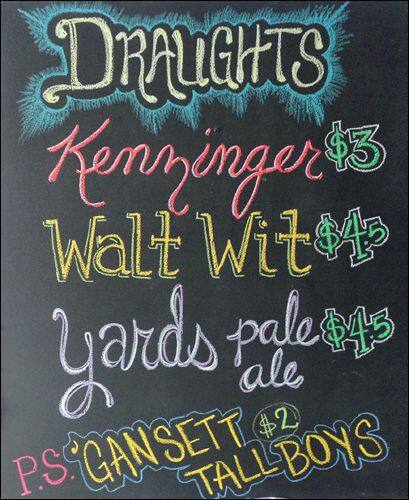 DRAUGHTS
Kenzinger $3
Walt Wit $4.5
Yards pale ale $4.5
P.S. 'GANSETT $2
TALL BOYS